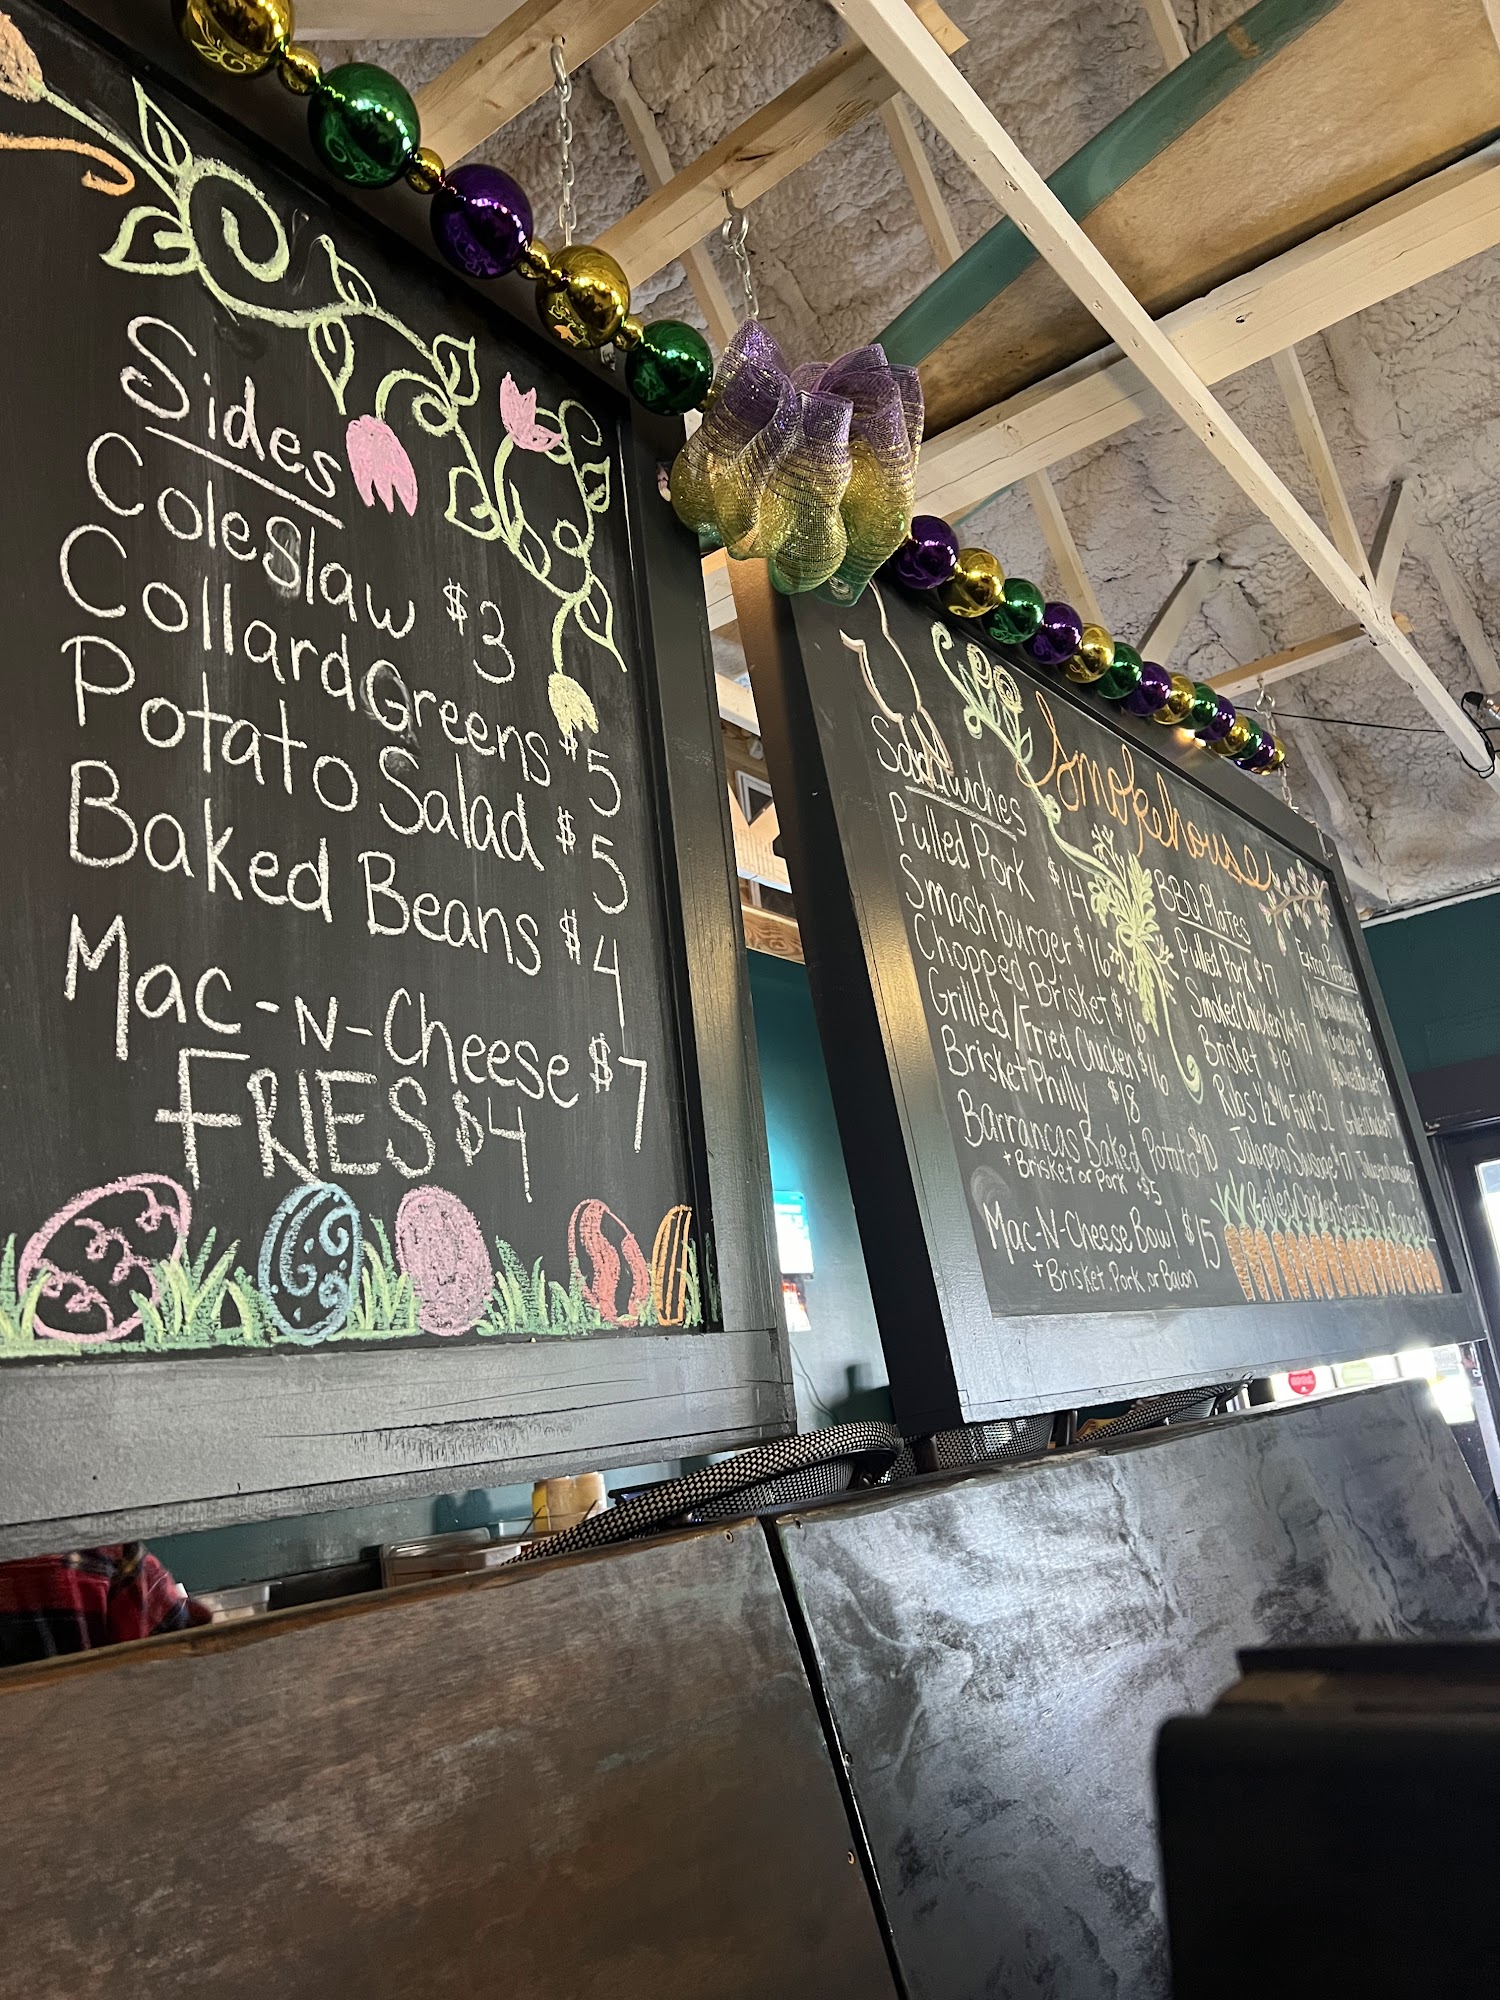 Sides
ColeSlaw $3
Collard Greens $5
Potato Salad $5
Baked Beans $4
Mac-N-Cheese $7
FRIES $4
Smokehouse
Sandwiches
Pulled Pork $14
Smashburger $16
Chopped Brisket $16
Grilled/Fried Chicken $16
Brisket Philly $18
Barrancas Baked Potato $10
+ Brisket or Pork +$5
Mac-N-Cheese Bowl $15
+ Brisket, Pork, or Bacon
BBQ Plates
Pulled Pork $17
Smoked Chicken 1/4 $17
Brisket $19
Ribs 1/2 $16 Full $32
Jalapeno Sausage $17
Extra Protein